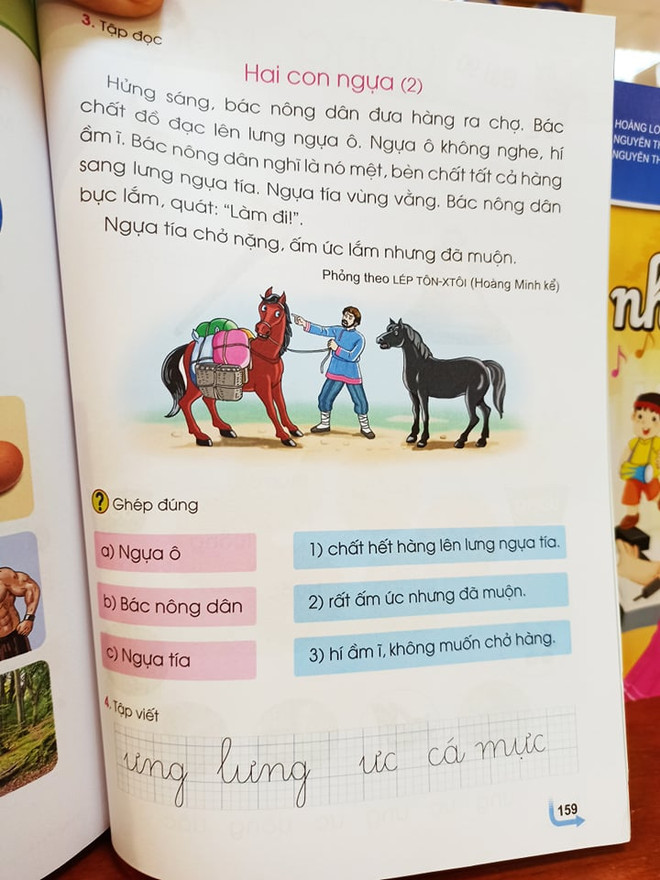 3. Tập đọc
Hai con ngựa (2)
Hửng sáng, bác nông dân đưa hàng ra chợ. Bác
chất đồ đạc lên lưng ngựa ô. Ngựa ô không nghe, hí
ầm ĩ. Bác nông dân nghĩ là nó mệt, bèn chất tất cả hàng
sang lưng ngựa tía. Ngựa tía vùng vằng. Bác nông dân
bực lắm, quát: “Làm đi!”.
Ngựa tía chở nặng, ấm ức lắm nhưng đã muộn.
Phỏng theo LÉP TÔN-XTÔI (Hoàng Minh kể)
? Ghép đúng
a) Ngựa ô
1) chất hết hàng lên lưng ngựa tía.
b) Bác nông dân
2) rất ấm ức nhưng đã muộn.
c) Ngựa tía
3) hí ầm ĩ, không muốn chở hàng.
4. Tập viết
ưng lưng ưc cá mực
159
HOÀNG LO
NGUYỄN TH
NGUYỄN TH